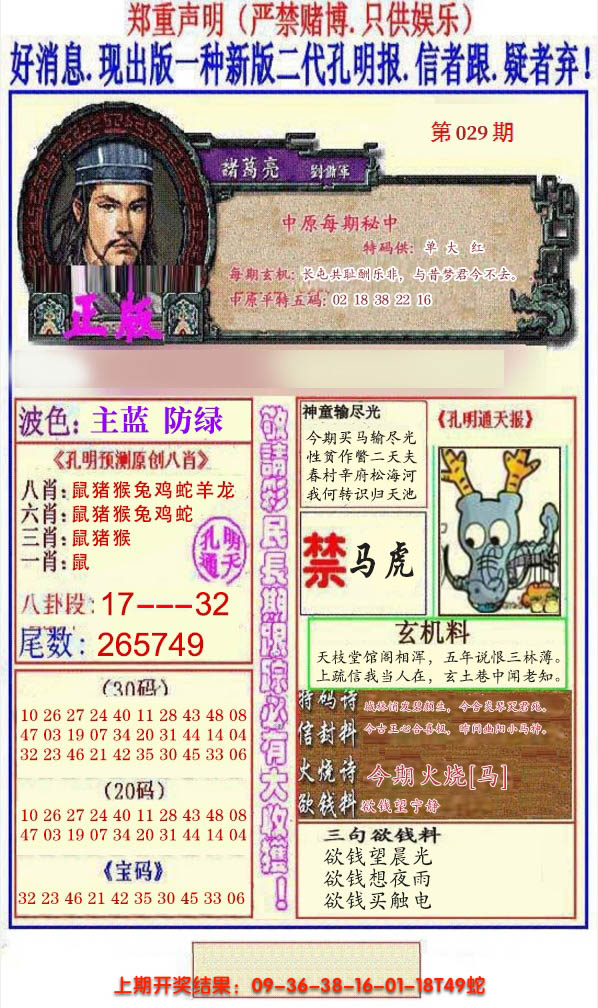 郑重声明（严禁赌博.只供娱乐）
好消息.现出版一种新版二代孔明报.信者跟.疑者弃!
第029期
諸葛亮 劉備軍
中原每期秘中
特码供: 单 大 红
每期玄机: 长屯共耻酬乐非，与昔梦君今不去。
中原平特五码: 02 18 38 22 16
正版
波色: 主蓝 防绿
《孔明预测原创八肖》
八肖: 鼠猪猴兔鸡蛇羊龙
六肖: 鼠猪猴兔鸡蛇
三肖: 鼠猪猴
一肖: 鼠
孔明通天
八卦段: 17---32
尾数: 265749
（30码）
10 26 27 24 40 11 28 43 48 08
47 03 19 07 34 20 31 44 14 04
32 23 46 21 42 35 30 45 33 06
（20码）
10 26 27 24 40 11 28 43 48 08
47 03 19 07 34 20 31 44 14 04
《宝码》
32 23 46 21 42 35 30 45 33 06
敬請彩民長期跟踪必有大收獲！
神童输尽光
今期买马输尽光
性贫作瞥二天夫
春村辛府松海河
我何转识归天池
《孔明通天报》
禁 马虎
玄机料
天枝堂馆阁相浑，五年说恨三林薄。
上疏信我当人在，玄土巷中闻老知。
特码诗
信封料
火烧诗 今期火烧[马]
欲钱料 欲钱望宁静
三句欲钱料
欲钱望晨光
欲钱想夜雨
欲钱买触电
上期开奖结果：09-36-38-16-01-18T49蛇